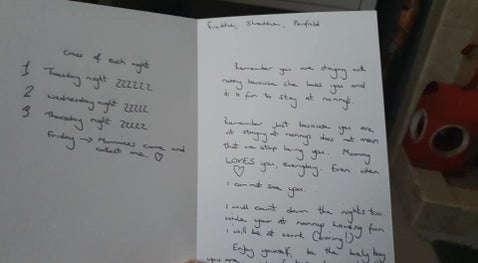 cross off each night
1 Tuesday night ZZZZZZ
2 Wednesday night ZZZZZ
3 Thursday night ZZZZZ
Friday → Mummies come and
collect me. ♡
Freddie,
Remember you are staying with
nanny because she loves you and
it is fun to stay at nanny's.
Remember just because you are
staying at nannys does not mean
that we stop loving you. Mummy
LOVES you, everyday. Even when
♡
I can not see you.
I will count down the nights too
while your at nannys having fun
I will be at work (boring!)
Enjoy yourself, be the lovely boy
you are